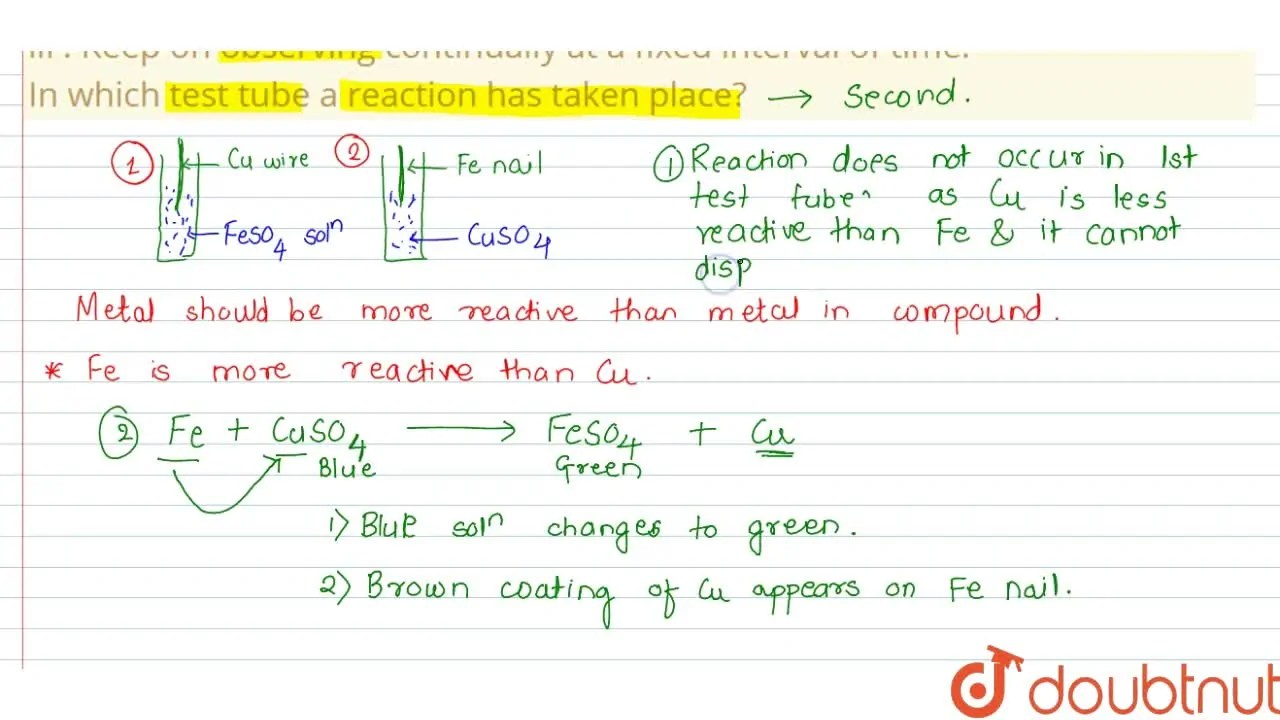 iii . Keep on observing continually at a fixed interval of time.
In which test tube a reaction has taken place? → Second.
1 Cu wire
FeSO4 solⁿ
2 Fe nail
CuSO4
① Reaction does not occur in 1st
test tube as Cu is less
reactive than Fe & it cannot
disp
Metal should be more reactive than metal in compound.
* Fe is more reactive than Cu.
② Fe + CuSO4 → FeSO4 + Cu
Blue Green
1) Blue solⁿ changes to green.
2) Brown coating of Cu appears on Fe nail.
doubtnut